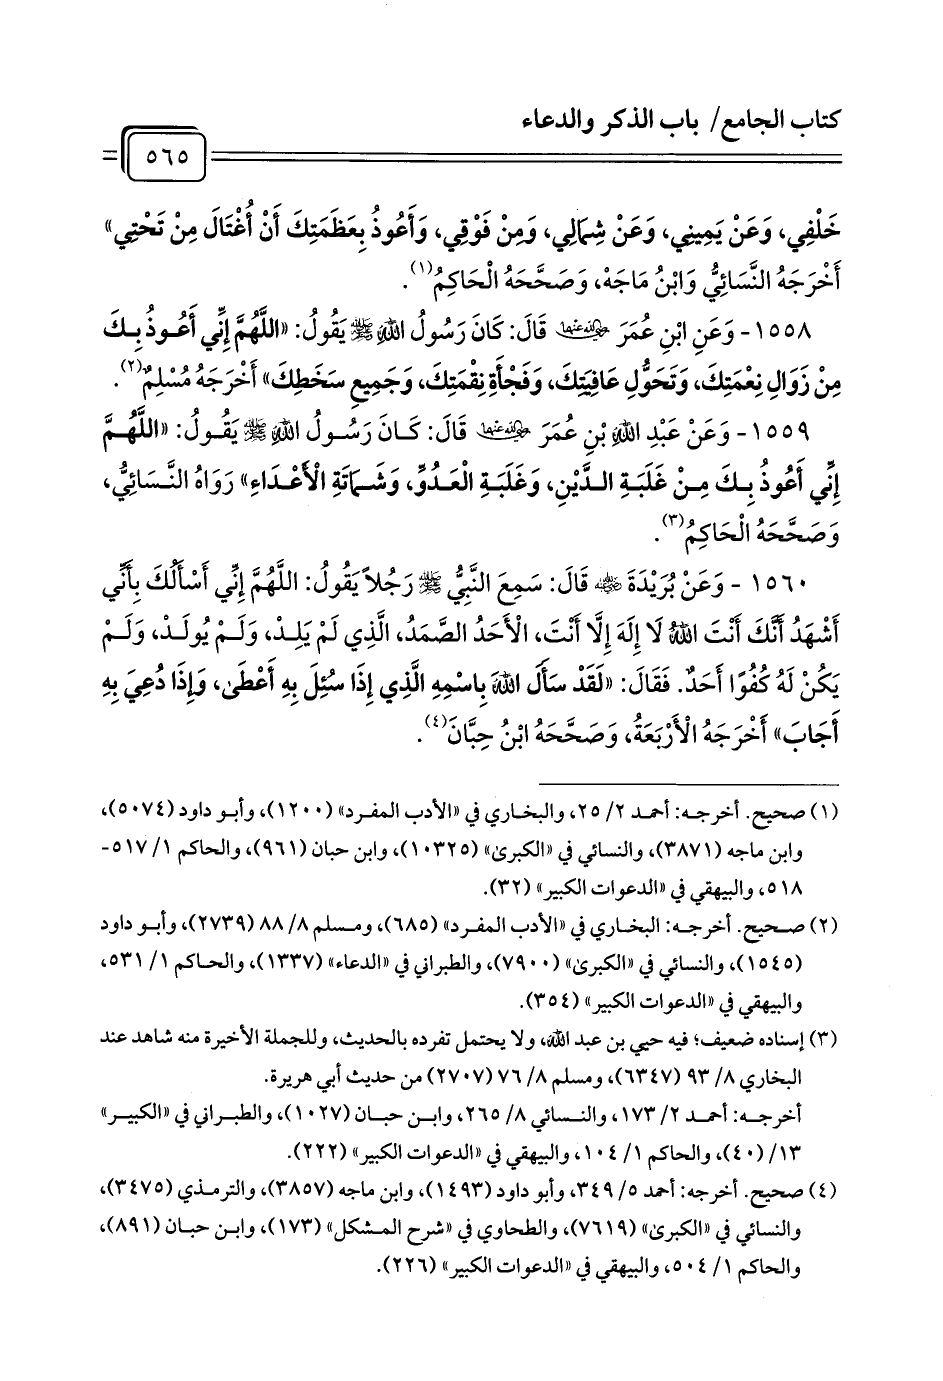 كتاب الجامع/ باب الذكر والدعاء
٥٦٥
خَلْفِي، وَعَنْ يَمِينِي، وَعَنْ شِمَالِي، وَمِنْ فَوْقِي، وَأَعُوذُ بِعَظَمَتِكَ أَنْ أُغْتَالَ مِنْ تَحْتِي»
أَخْرَجَهُ النَّسَائِيُّ وَابْنُ مَاجَهْ، وَصَحَّحَهُ الْحَاكِمُ(١).
١٥٥٨- وَعَنِ ابْنِ عُمَرَ رضي الله عنهما قَالَ: كَانَ رَسُولُ اللهِ ﷺ يَقُولُ: «اللَّهُمَّ إِنِّي أَعُوذُ بِكَ
مِنْ زَوَالِ نِعْمَتِكَ، وَتَحَوُّلِ عَافِيَتِكَ، وَفَجْأَةِ نِقْمَتِكَ، وَجَمِيعِ سَخَطِكَ» أَخْرَجَهُ مُسْلِمٌ(٢).
١٥٥٩- وَعَنْ عَبْدِ اللهِ بْنِ عُمَرَ رضي الله عنهما قَالَ: كَانَ رَسُولُ اللهِ ﷺ يَقُولُ: «اللَّهُمَّ
إِنِّي أَعُوذُ بِكَ مِنْ غَلَبَةِ الدَّيْنِ، وَغَلَبَةِ الْعَدُوِّ، وَشَمَاتَةِ الْأَعْدَاءِ» رَوَاهُ النَّسَائِيُّ،
وَصَحَّحَهُ الْحَاكِمُ(٣).
١٥٦٠ - وَعَنْ بُرَيْدَةَ رضي الله عنه قَالَ: سَمِعَ النَّبِيُّ ﷺ رَجُلاً يَقُولُ: اللَّهُمَّ إِنِّي أَسْأَلُكَ بِأَنِّي
أَشْهَدُ أَنَّكَ أَنْتَ اللهُ لَا إِلَهَ إِلَّا أَنْتَ، الْأَحَدُ الصَّمَدُ، الَّذِي لَمْ يَلِدْ، وَلَمْ يُولَدْ، وَلَمْ
يَكُنْ لَهُ كُفُوًا أَحَدٌ. فَقَالَ: «لَقَدْ سَأَلَ اللهَ بِاسْمِهِ الَّذِي إِذَا سُئِلَ بِهِ أَعْطَى، وَإِذَا دُعِيَ بِهِ
أَجَابَ» أَخْرَجَهُ الْأَرْبَعَةُ، وَصَحَّحَهُ ابْنُ حِبَّانَ(٤).
(١) صحيح. أخرجه: أحمد ٢/ ٢٥، والبخاري في «الأدب المفرد» (١٢٠٠)، وأبو داود (٥٠٧٤)،
وابن ماجه (٣٨٧١)، والنسائي في «الكبرى» (١٠٣٢٥)، وابن حبان (٩٦١)، والحاكم ١/ ٥١٧-
٥١٨، والبيهقي في «الدعوات الكبير» (٣٢).
(٢) صحيح. أخرجه: البخاري في «الأدب المفرد» (٦٨٥)، ومسلم ٨/ ٨٨ (٢٧٣٩)، وأبو داود
(١٥٤٥)، والنسائي في «الكبرى» (٧٩٠٠)، والطبراني في «الدعاء» (١٣٣٧)، والحاكم ١/ ٥٣١،
والبيهقي في «الدعوات الكبير» (٣٥٤).
(٣) إسناده ضعيف؛ فيه حيي بن عبد الله، ولا يحتمل تفرده بالحديث، وللجملة الأخيرة منه شاهد عند
البخاري ٨/ ٩٣ (٦٣٤٧)، ومسلم ٨/ ٧٦ (٢٧٠٧) من حديث أبي هريرة.
أخرجه: أحمد ٢/ ١٧٣، والنسائي ٨/ ٢٦٥، وابن حبان (١٠٢٧)، والطبراني في «الكبير»
١٣/ (٤٠)، والحاكم ١/ ١٠٤، والبيهقي في «الدعوات الكبير» (٢٢٢).
(٤) صحيح. أخرجه: أحمد ٥/ ٣٤٩، وأبو داود (١٤٩٣)، وابن ماجه (٣٨٥٧)، والترمذي (٣٤٧٥)،
والنسائي في «الكبرى» (٧٦١٩)، والطحاوي في «شرح المشكل» (١٧٣)، وابن حبان (٨٩١)،
والحاكم ١/ ٥٠٤، والبيهقي في «الدعوات الكبير» (٢٢٦).